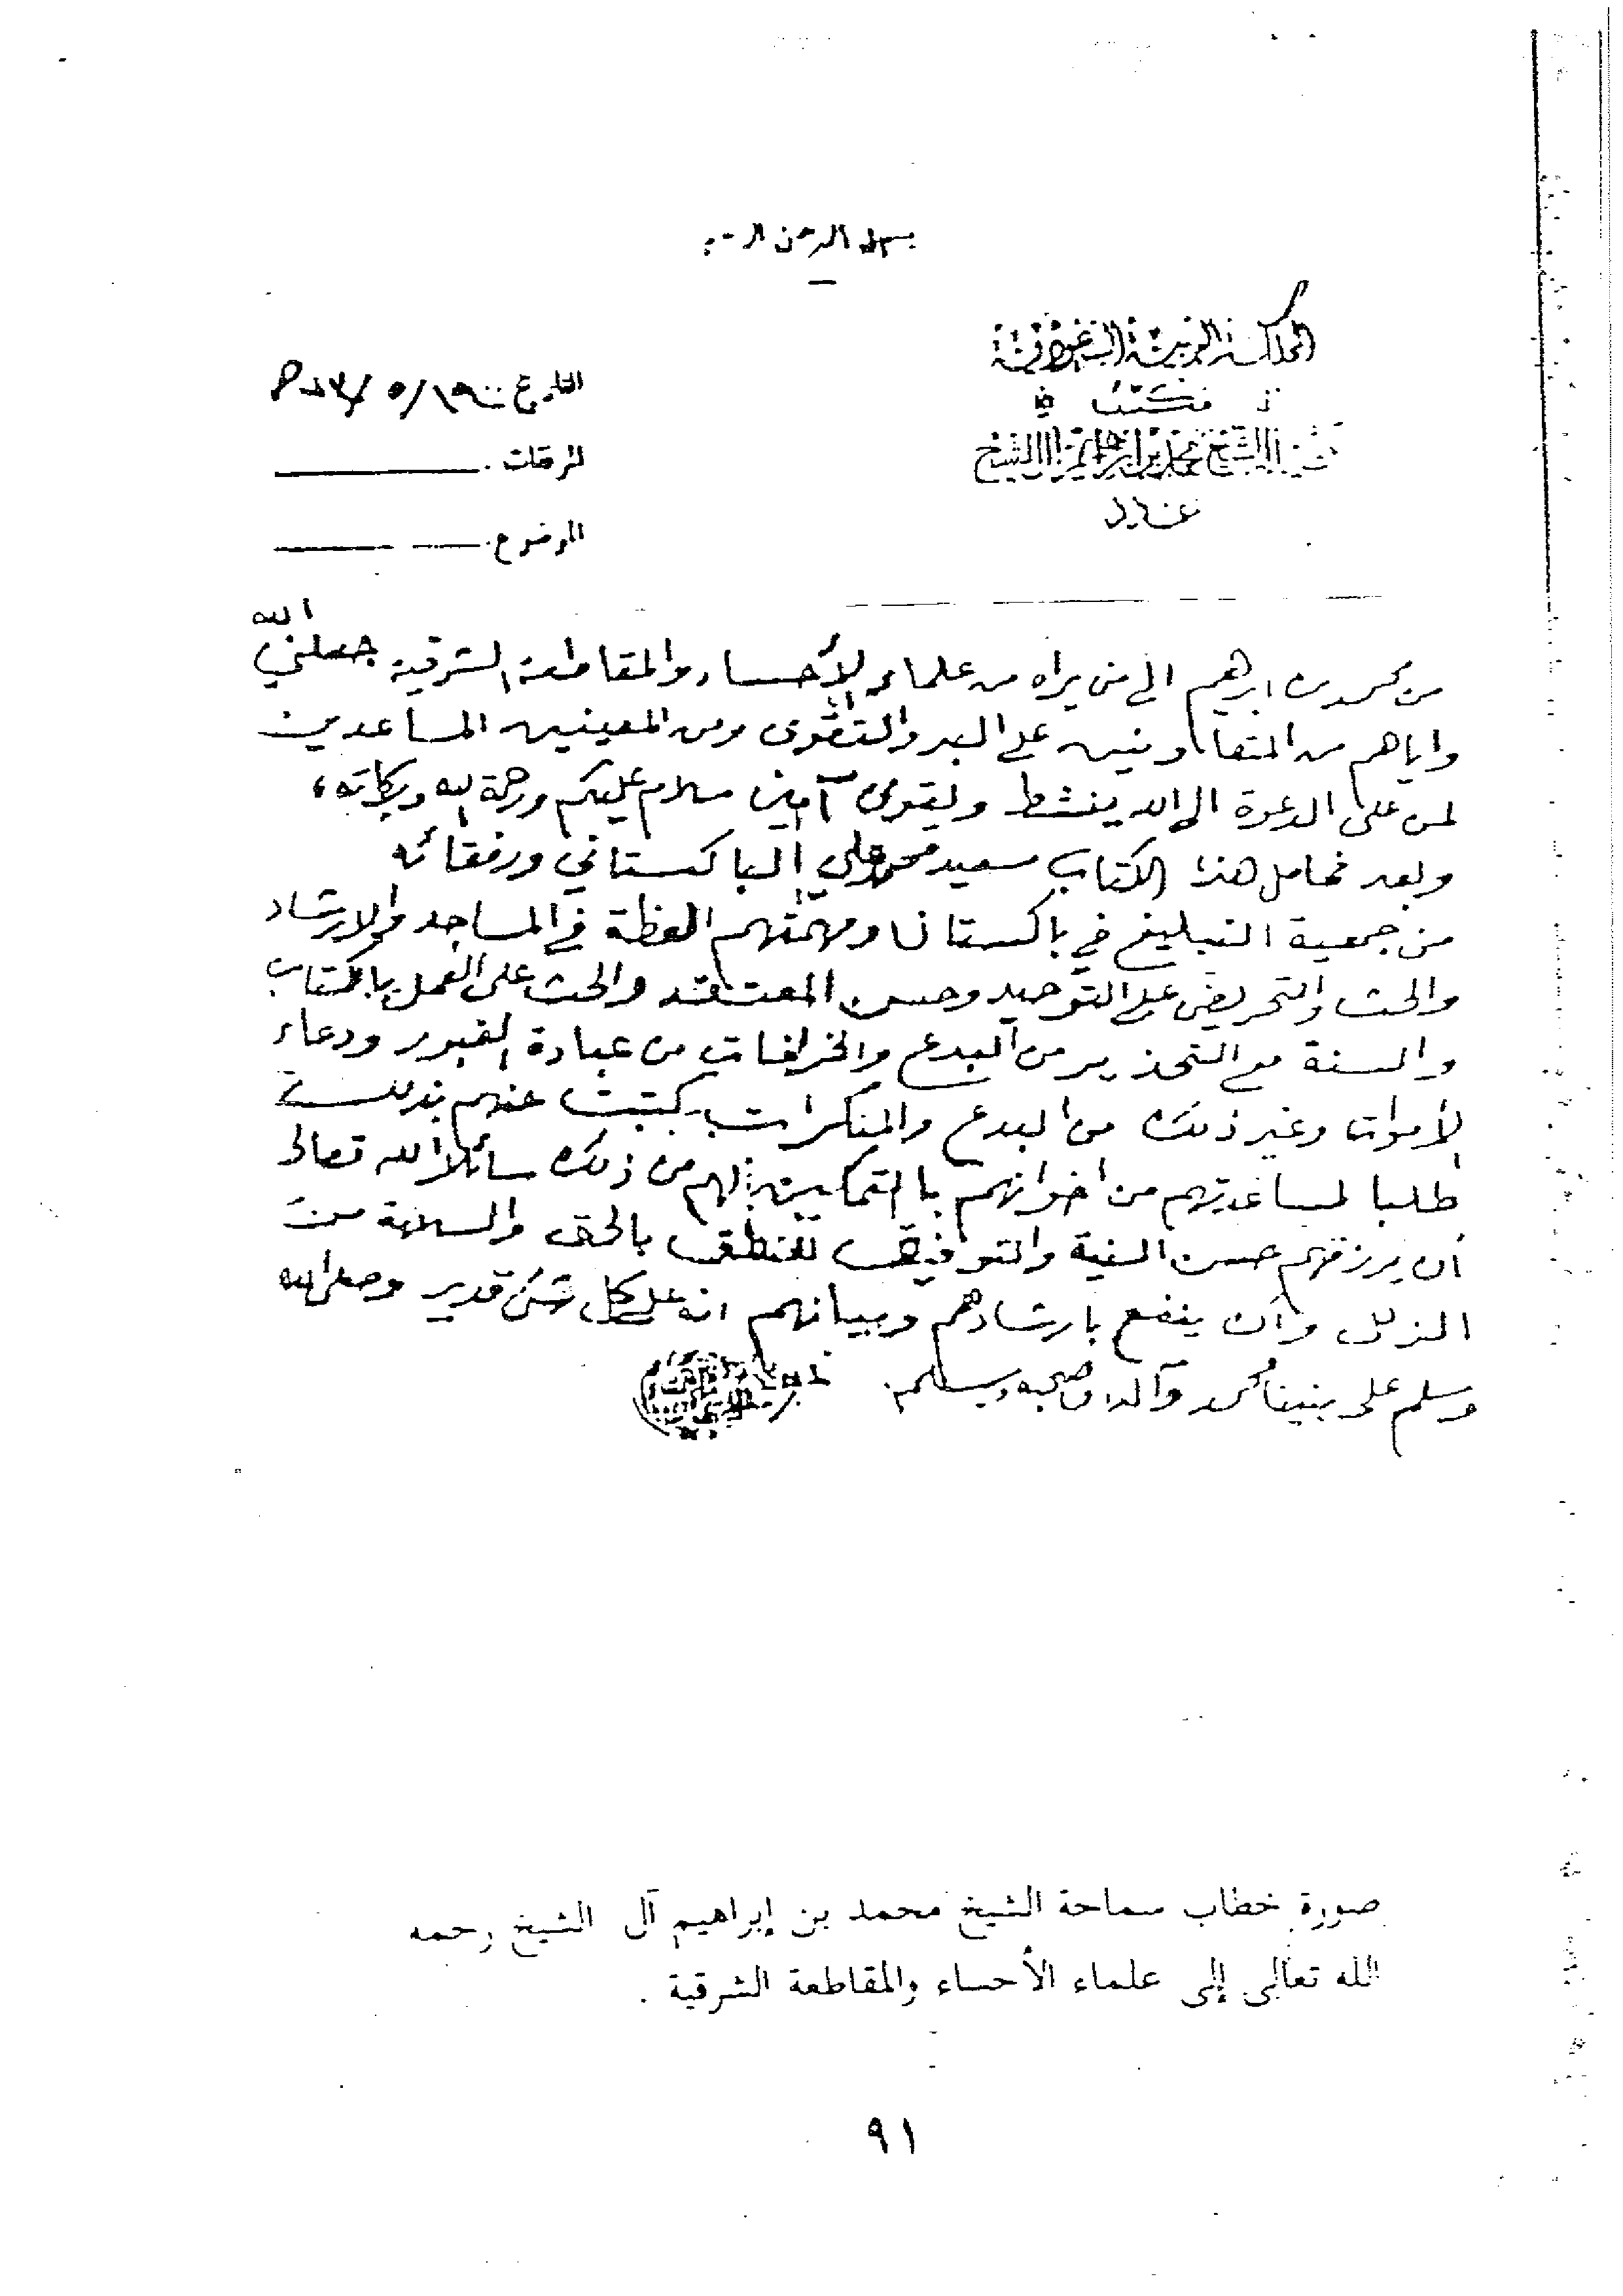 بسم الله الرحمن الرحيم
المملكة العربية السعودية
مكتب
الشيخ محمد بن ابراهيم آل الشيخ
عدد
التاريخ ١٩/٥/
المرفقات
الموضوع
من محمد بن ابرهيم الى من يراه من علماء الأحساء والمقاطعة الشرقية جعلني الله
واياهم من المتعاونين على البر والتقوى ومن المعينين المساعدين
لمن على الدعوة الى الله ينشط ويقوى آمين سلام عليكم ورحمة الله وبركاته،
وبعد فحامل هذا الكتاب سعيد محمد علي الباكستاني ورفقائه
من جمعية التبليغ في باكستان ومهمتهم العظة في المساجد والارشاد
والحث والتحريض على التوحيد وحسن المعتقد والحث على العمل بالكتاب
والسنة مع التحذير من البدع والخرافات من عبادة القبور ودعاء
لأموات وغير ذلك من البدع والمنكرات كتبت عنهم بذلك
طلبا لمساعدتهم من اخوانهم بالتمكين لهم من ذلك سائلا الله تعالى
أن يرزقهم حسن النية والتوفيق للنطق بالحق والسلامة من
الزلل وأن ينفع بارشادهم وبيانهم انه على كل شئ قدير وصلى الله
وسلم على نبينا محمد وآله وصحبه وسلم.
صورة خطاب سماحة الشيخ محمد بن إبراهيم آل الشيخ رحمه
الله تعالى إلى علماء الأحساء والمقاطعة الشرقية .
٩١